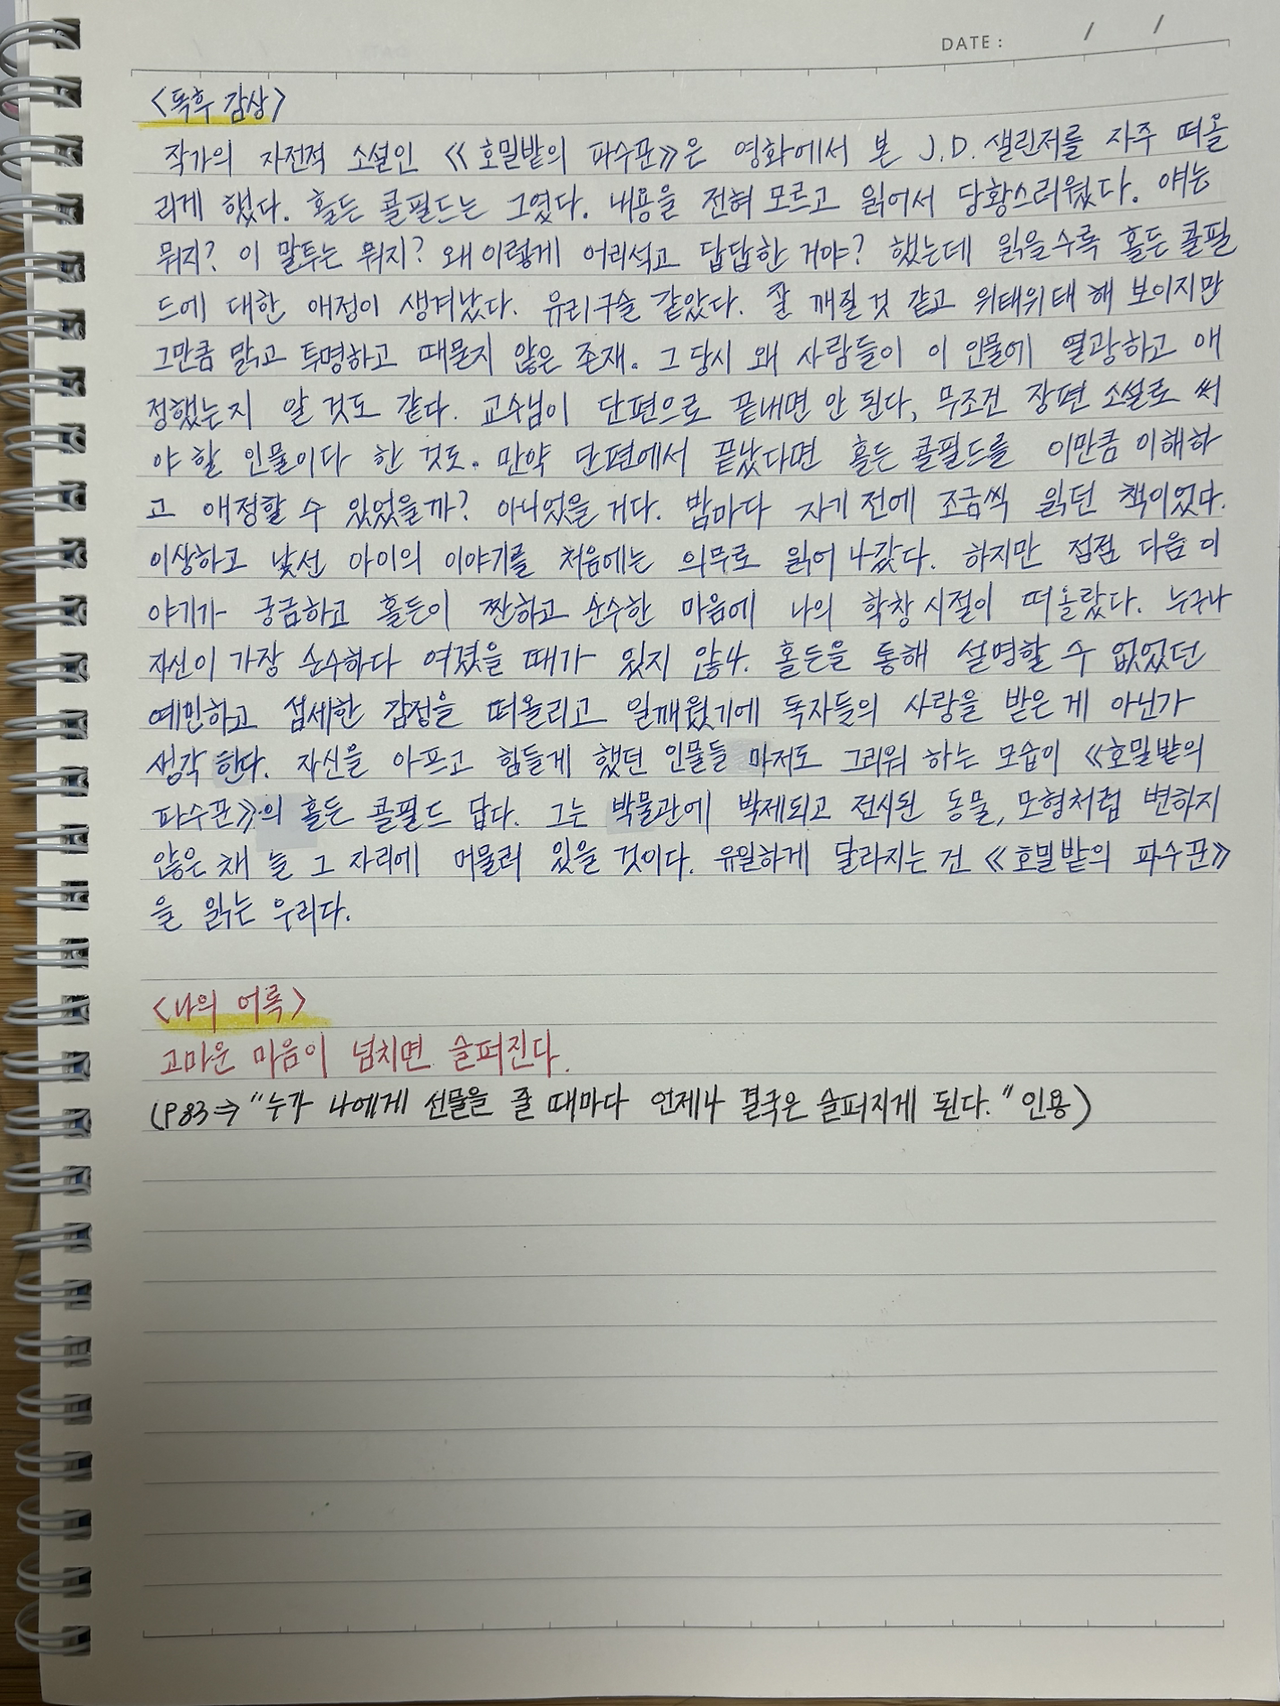 DATE : / /
<독후 감상>
작가의 자전적 소설인 《호밀밭의 파수꾼》은 영화에서 본 J.D. 샐린저를 자주 떠올
리게 했다. 홀든 콜필드는 그였다. 내용을 전혀 모르고 읽어서 당황스러웠다. 얘는
뭐지? 이 말투는 뭐지? 왜 이렇게 어리석고 답답한 거야? 했는데 읽을수록 홀든 콜필
드에 대한 애정이 생겨났다. 유리구슬 같았다. 잘 깨질 것 같고 위태위태 해 보이지만
그만큼 맑고 투명하고 때묻지 않은 존재. 그 당시 왜 사람들이 이 인물에 열광하고 애
정했는지 알 것도 같다. 교수님이 단편으로 끝내면 안 된다, 무조건 장편 소설로 써
야 할 인물이다 한 것도. 만약 단편에서 끝났다면 홀든 콜필드를 이만큼 이해하
고 애정할 수 있었을까? 아니었을 거다. 밤마다 자기 전에 조금씩 읽던 책이었다.
이상하고 낯선 아이의 이야기를 처음에는 의무로 읽어 나갔다. 하지만 점점 다음 이
야기가 궁금하고 홀든이 짠하고 순수한 마음에 나의 학창 시절이 떠올랐다. 누구나
자신이 가장 순수하다 여겼을 때가 있지 않나. 홀든을 통해 설명할 수 없었던
예민하고 섬세한 감정을 떠올리고 일깨웠기에 독자들의 사랑을 받은 게 아닌가
생각 한다. 자신을 아프고 힘들게 했던 인물들 마저도 그리워 하는 모습이 《호밀밭의
파수꾼》의 홀든 콜필드 답다. 그는 박물관에 박제되고 전시된 동물, 모형처럼 변하지
않은 채 늘 그 자리에 머물러 있을 것이다. 유일하게 달라지는 건 《호밀밭의 파수꾼》
을 읽는 우리다.
<나의 어록>
고마운 마음이 넘치면 슬퍼진다.
(P83⇒ "누가 나에게 선물을 줄 때마다 언제나 결국은 슬퍼지게 된다." 인용)